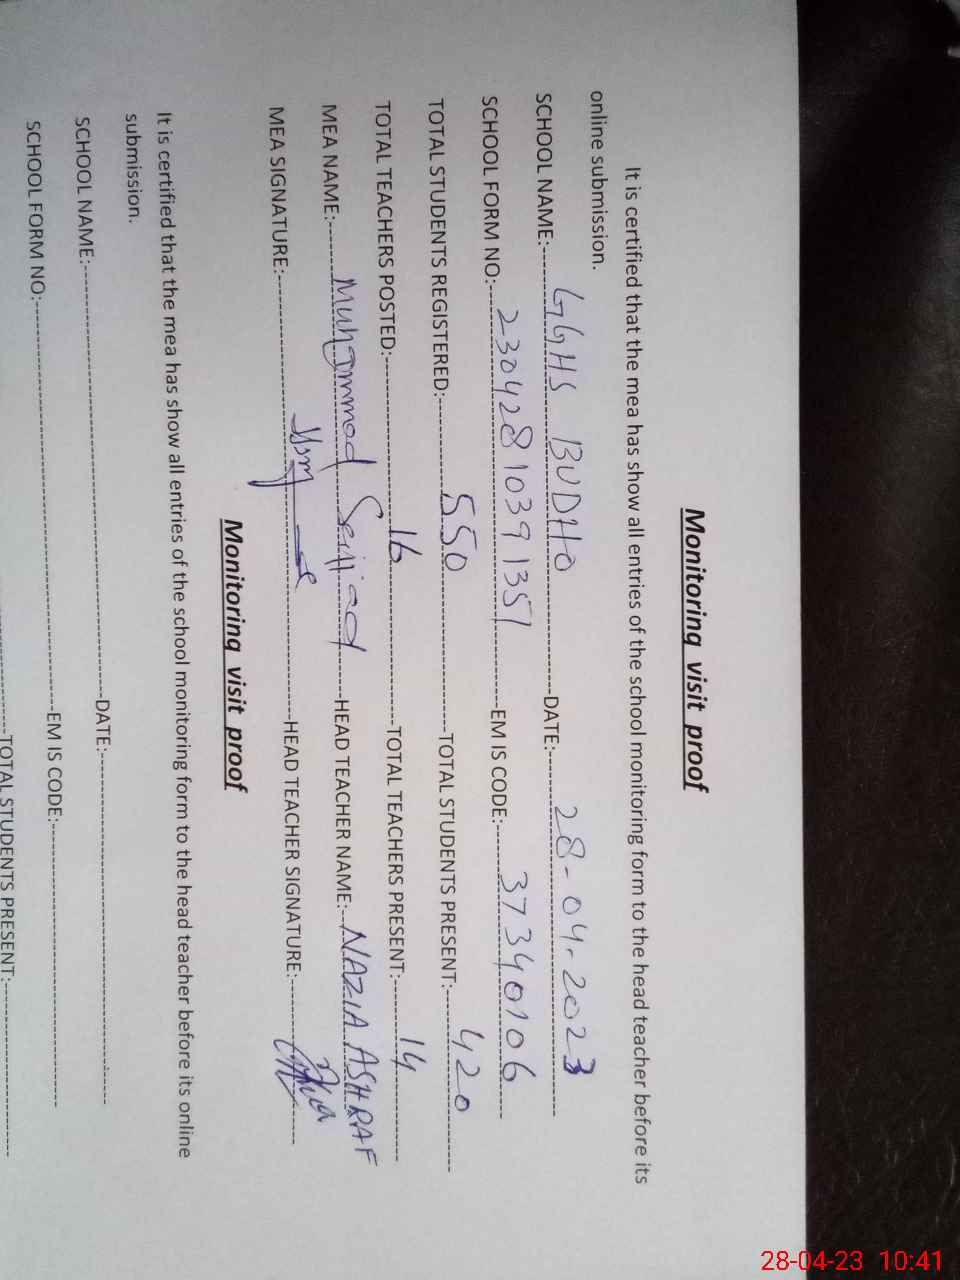 Monitoring visit proof
It is certified that the mea has show all entries of the school monitoring form to the head teacher before its
online submission.
SCHOOL NAME:- GGHS BUDHO DATE:- 28-04-2023
SCHOOL FORM NO:- 23042810391351 EM IS CODE:- 37340106
TOTAL STUDENTS REGISTERED:- 550 TOTAL STUDENTS PRESENT:- 420
TOTAL TEACHERS POSTED:- 16 TOTAL TEACHERS PRESENT:- 14
MEA NAME:- Muhammad HEAD TEACHER NAME:- NAZIA ASHRAF
MEA SIGNATURE:- HEAD TEACHER SIGNATURE:-
Monitoring visit proof
It is certified that the mea has show all entries of the school monitoring form to the head teacher before its online
submission.
SCHOOL NAME:- DATE:-
SCHOOL FORM NO:- EM IS CODE:-
TOTAL STUDENTS PRESENT:-
28-04-23 10:41